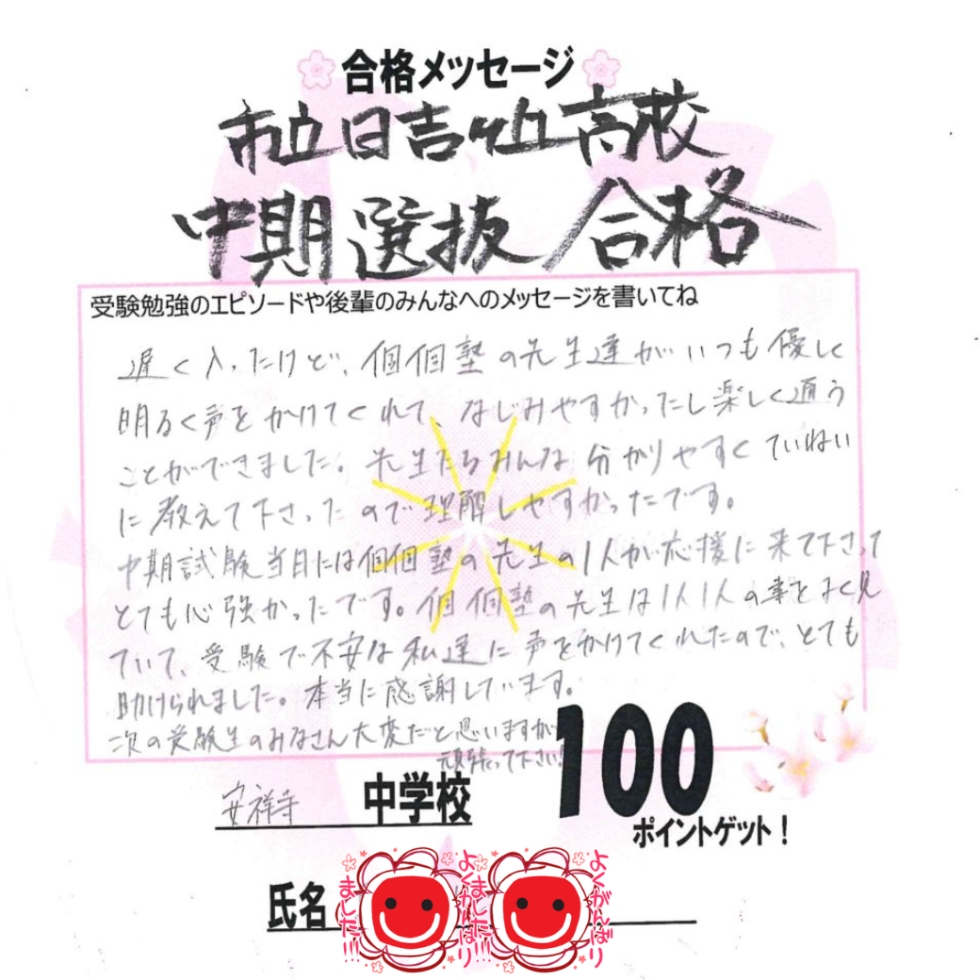 合格メッセージ
市立日吉ケ丘高校
中期選抜 合格
受験勉強のエピソードや後輩のみんなへのメッセージを書いてね
遅く入ったけど、個個塾の先生達がいつも優しく
明るく声をかけてくれて、なじみやすかったし楽しく通う
ことができました。先生たちみんな分かりやすくていねい
に教えて下さったので理解しやすかったです。
中期試験当日には個個塾の先生の1人が応援に来て下さって
とても心強かったです。個個塾の先生は1人1人の事をよく見
ていて、受験で不安な私達に声をかけてくれたので、とても
助けられました。本当に感謝しています。
次の受験生のみなさん大変だと思いますが
頑張って下さい!
安祥寺 中学校
100
ポイントゲット!
氏名
よくがんばりました!!!
よくがんばりました!!!